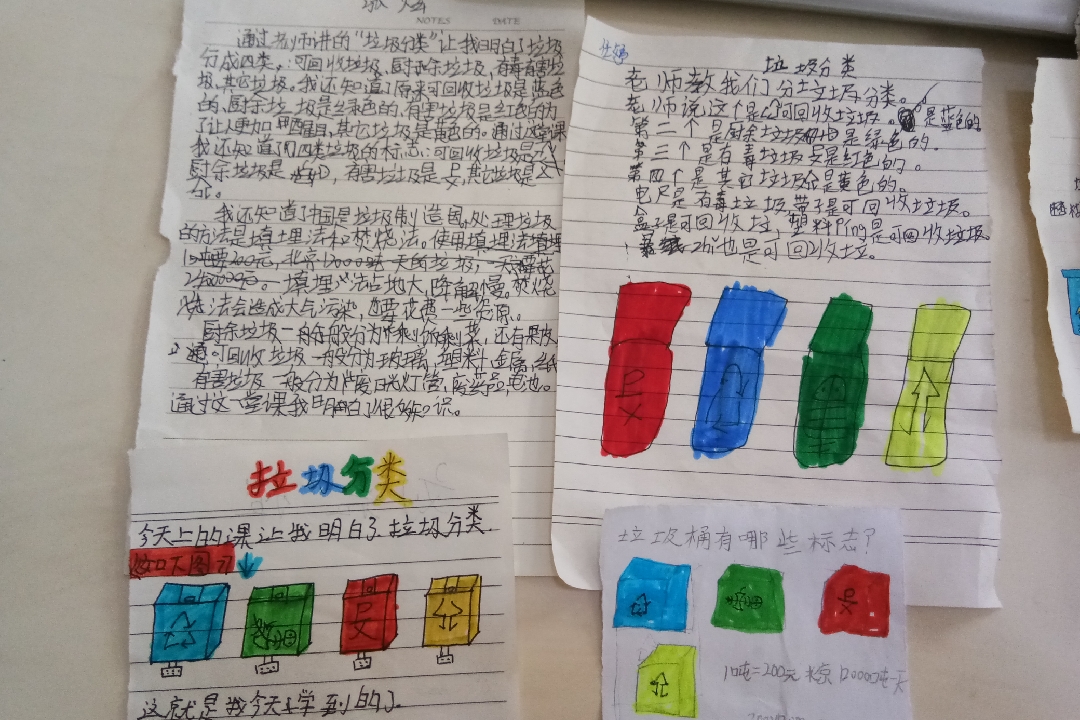 NOTES DATE
通过老师讲的“垃圾分类”让我明白了垃圾
分成四类。:可回收垃圾、厨余垃圾,有毒有害垃
圾,其它垃圾。我还知道了原来可回收垃圾是蓝色
的,厨余垃圾是绿色的,有害垃圾是红色的为
了让人更加醒目,其它垃圾是黄色的。通过这堂课
我还知道了四类垃圾的标志:可回收垃圾是
厨余垃圾是,有害垃圾是,其它垃圾是
我还知道了中国是垃圾制造国,处理垃圾
的方法是填埋法和焚烧法。使用填埋法填埋
200元,北京12000吨一天的垃圾,一天
2400000元。填埋法占地大,降解慢。焚烧
烧法会造成大气污染,也要花费一些资源。
厨余垃圾一般分为剩饭剩菜,还有果皮
可回收垃圾一般分为玻璃,塑料,金属,纸
有害垃圾一般分为废日光灯管,废药品,电池。
通过这一堂课我明白了很多知识。
垃圾分类
老师教我们分垃圾分类。
老师说,这个是可回收垃圾。是蓝色的
第二个是厨余垃圾也是绿色的.
第三个是有毒垃圾是红色的。
第四个是其它垃圾是黄色的。
电尺是有毒垃圾,带子是可回收垃圾。
盒子是可回收垃,塑料Ping是可回收垃圾
zhi也是可回收垃。
垃圾分类
今天上的课让我明白了垃圾分类.
如下图
这就是我今天学到的了.
垃圾桶有哪些标志?
10吨=200元 北京12000吨一天